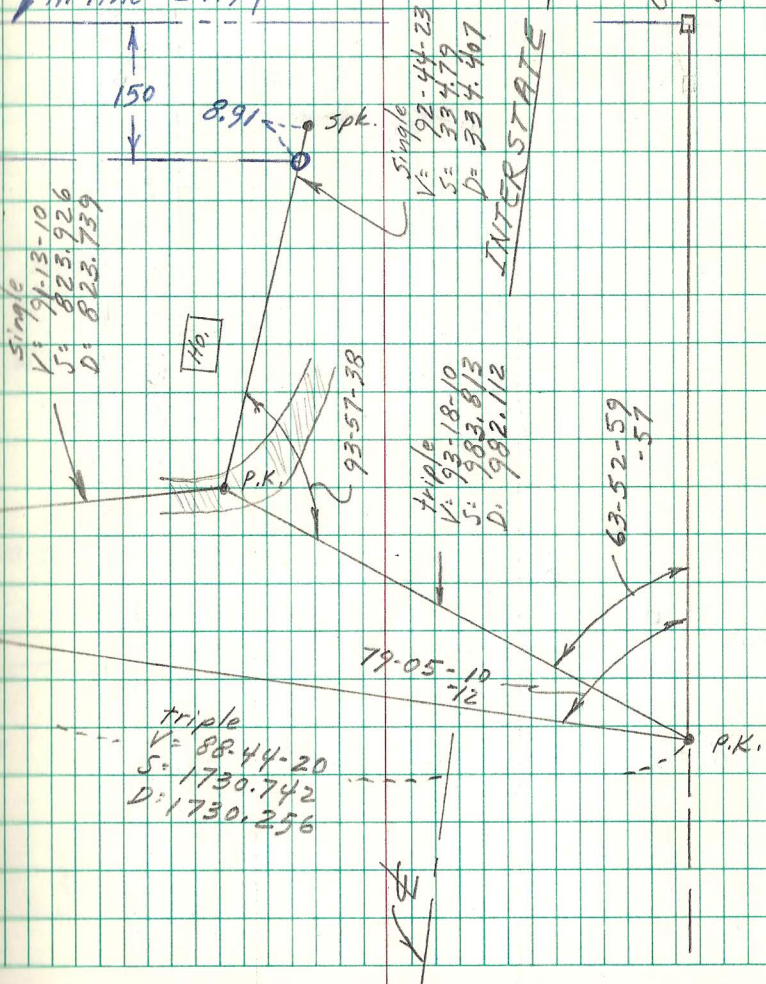 150
8.91
spk.
Single
V= 92-44-23
S= 334.79
D= 334.407
INTERSTATE
Single
V= 91-13-10
S= 823.926
D= 823.739
Ho.
P.K.
93-57-38
triple
V= 93-18-10
S= 983.813
D= 982.112
63-52-59
-57
79-05-10
-12
P.K.
triple
V= 88-44-20
S= 1730.742
D= 1730.256